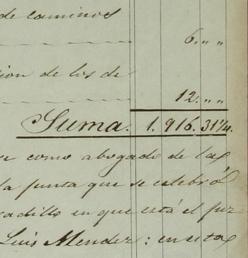 de caminos
6 „ „
cion de los de
12. „ „
Suma. 1. 916. 31¼
como abogado de la
la junta que se celebró
cadillo en que está el
Luis Mendez: en esta